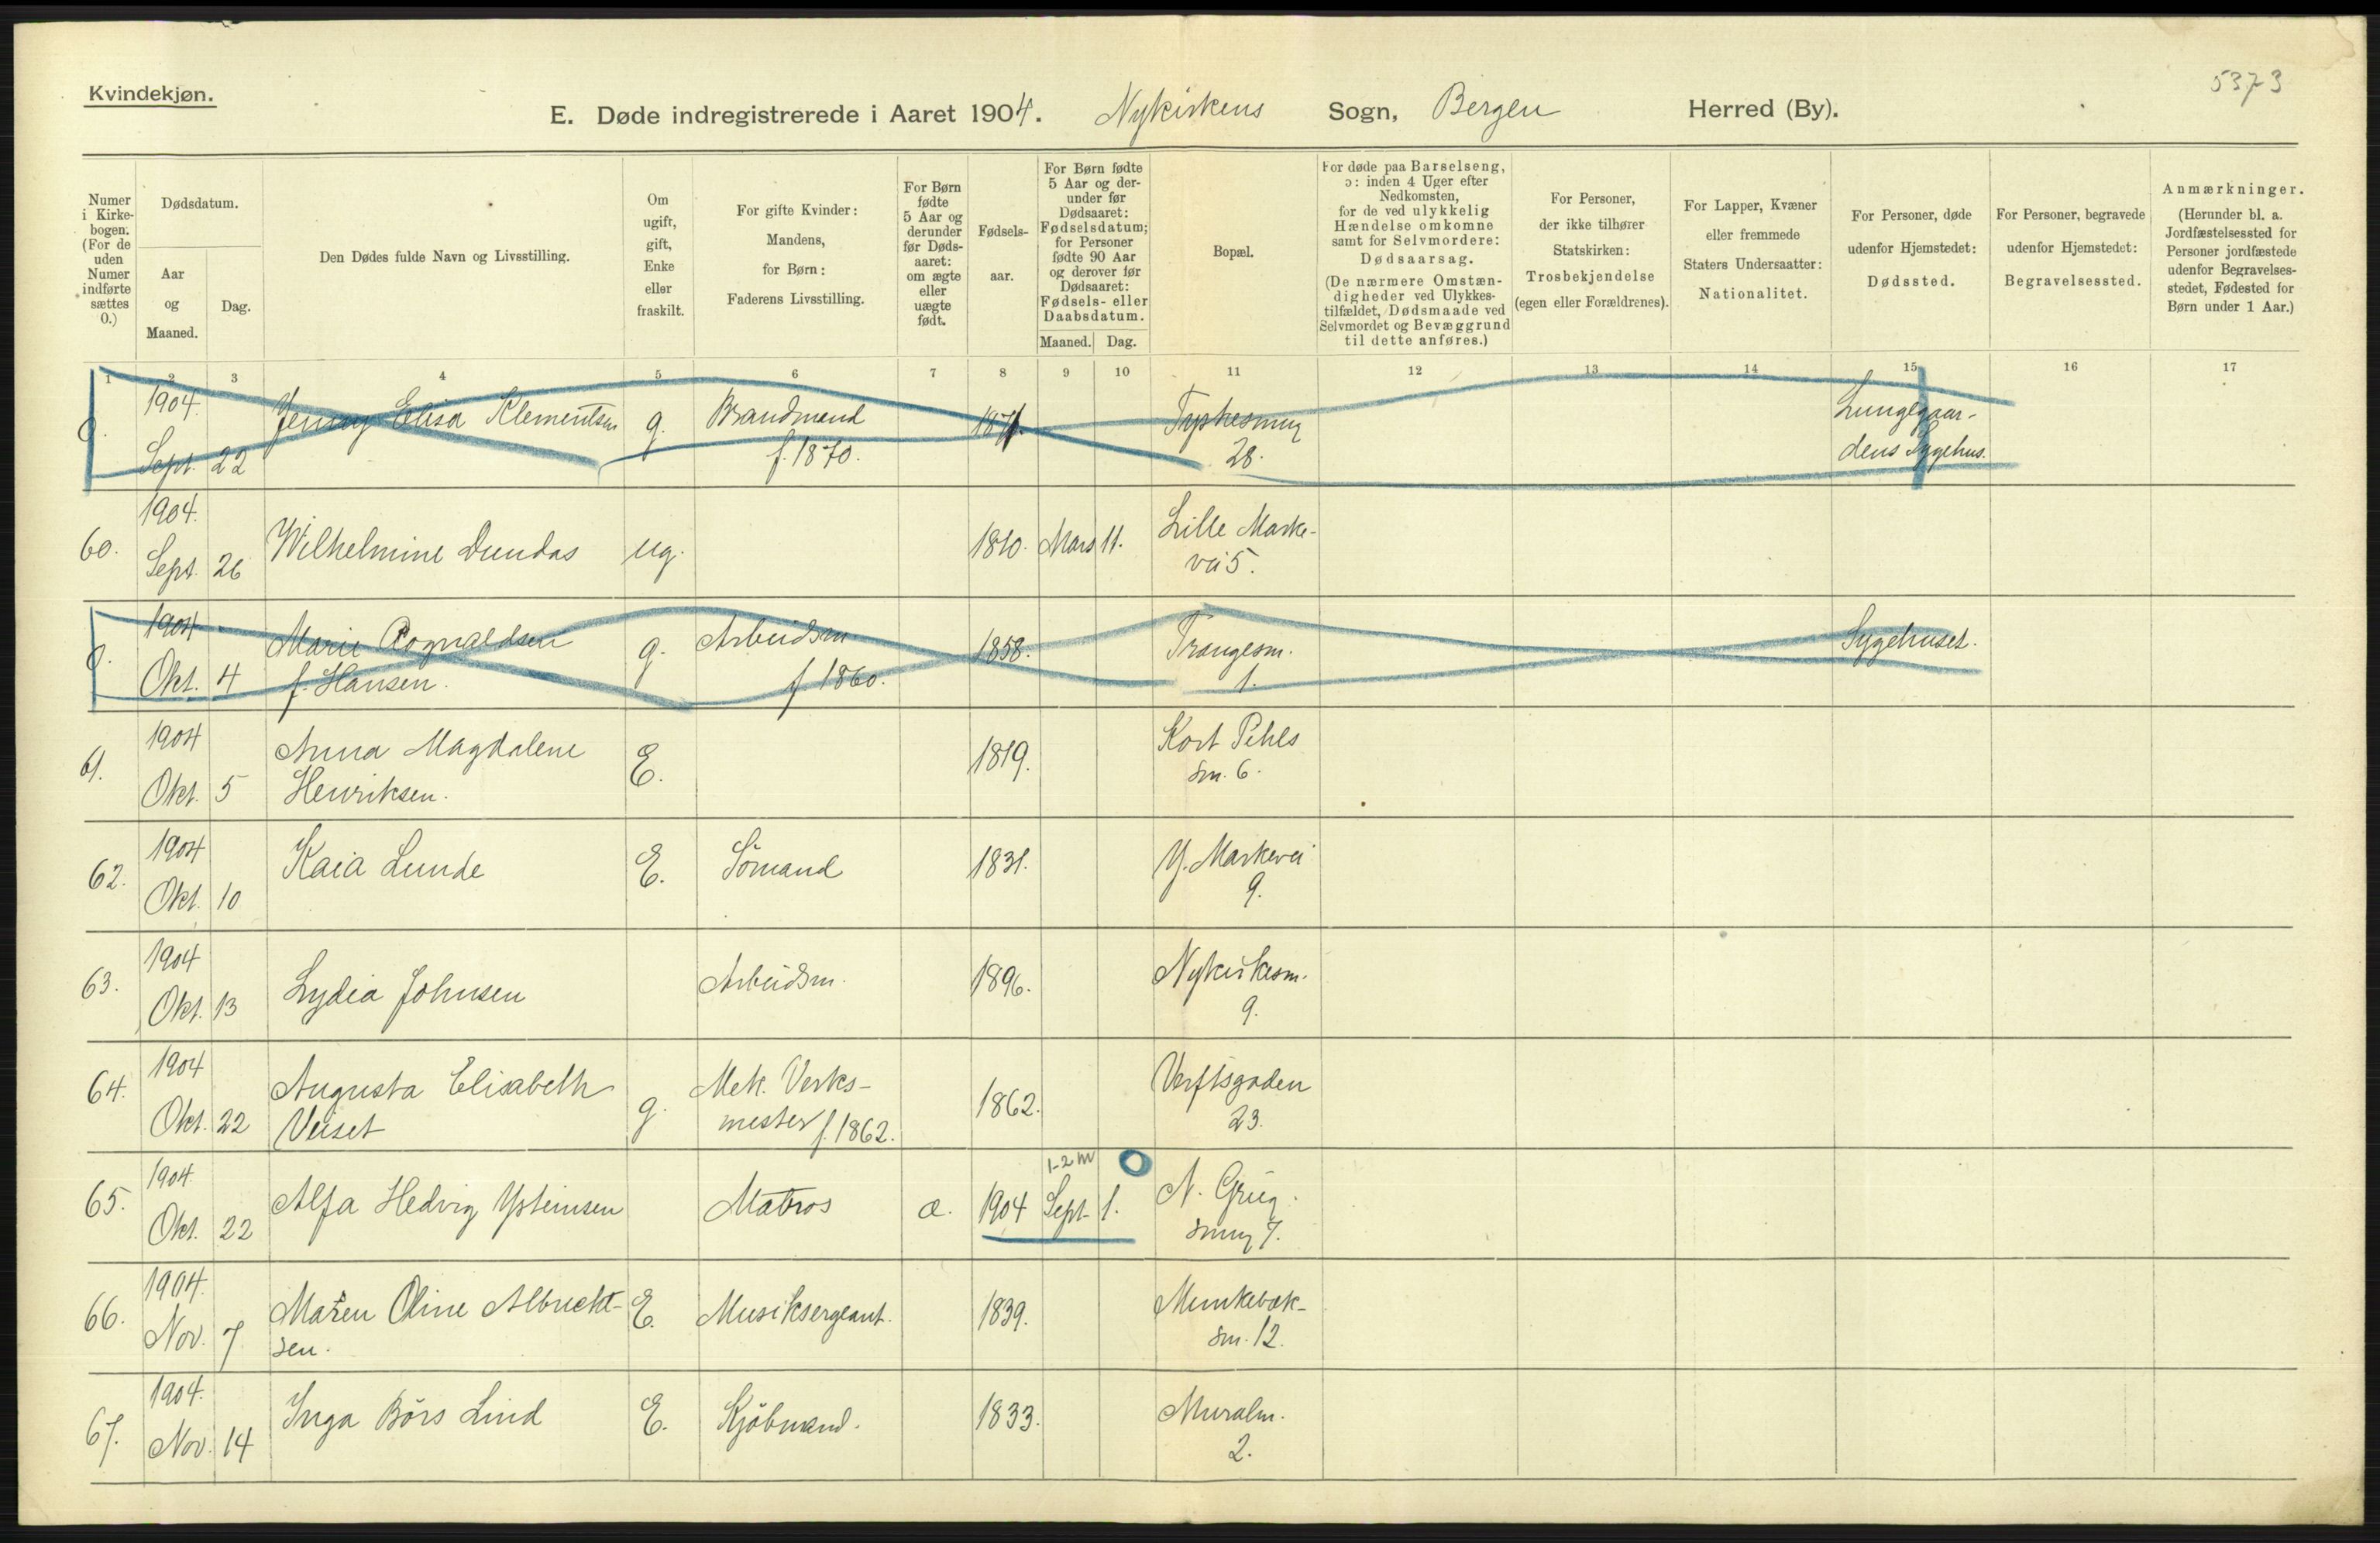 Kvindekjøn.
5373
E. Døde indregistrerede i Aaret 1904. Nykirkens Sogn, Bergen Herred (By).
Numer i Kirkebogen. (For de uden Numer indførte sættes 0.)
Dødsdatum.
Aar og Maaned.
Dag.
Den Dødes fulde Navn og Livsstilling.
Om ugift, gift, Enke eller fraskilt.
For gifte Kvinder: Mandens, for Børn: Faderens Livsstilling.
For Børn fødte 5 Aar og derunder før Dødsaaret: om ægte eller uægte født.
Fødselsaar.
For Børn fødte 5 Aar og derunder før Dødsaaret: Fødselsdatum; for Personer fødte 90 Aar og derover før Dødsaaret: Fødsels- eller Daabsdatum.
Maaned. Dag.
Bopæl.
For døde paa Barselseng, ɔ: inden 4 Uger efter Nedkomsten, for de ved ulykkelig Hændelse omkomne samt for Selvmordere: Dødsaarsag. (De nærmere Omstændigheder ved Ulykkestilfældet, Dødsmaade ved Selvmordet og Bevæggrund til dette anføres.)
For Personer, der ikke tilhører Statskirken: Trosbekjendelse (egen eller Forældrenes).
For Lapper, Kvæner eller fremmede Staters Undersaatter: Nationalitet.
For Personer, døde udenfor Hjemstedet: Dødssted.
For Personer, begravede udenfor Hjemstedet: Begravelsessted.
Anmærkninger. (Herunder bl. a. Jordfæstelsessted for Personer jordfæstede udenfor Begravelsesstedet, Fødested for Børn under 1 Aar.)
1 2 3 4 5 6 7 8 9 10 11 12 13 14 15 16 17
0. 1904. Sept. 22 Jenny Elisa Klementsen g. Brandmand f. 1870. 1871. 28. Lungegaardens Sygehus.
60. 1904. Sept. 26 Wilhelmine Dundas ug. 1810. Mars 11. Lille Markevei 5.
0. 1904 Okt. 4 Marie Rognaldsen f. Hansen. g. Arbeidsm. f 1860. 1858. Trangesm. 1. Sygehuset.
61. 1904 Okt. 5 Anna Magdalene Henriksen. E. 1819. Kort Pihls sm. 6.
62. 1904 Okt. 10 Kaia Lunde E. Sömand 1831. Y. Markevei 9.
63. 1904 Okt. 13 Lydia Johnsen Arbeidsm. 1896. Nykirkesm. 9.
64. 1904 Okt. 22 Augusta Elisabeth Veiset g. Mek. Verksmester f. 1862. 1862. Verftsgaden 23.
1-2 m
65. 1904 Okt. 22 Alfa Hedvig Ysteinsen Matros æ. 1904 Sept. 1. N. Griegsmug 7.
66. 1904. Nov. 7 Maren Oline Albrechtsen. E. Musiksergeant. 1839. Munkebæksm. 12.
67. 1904. Nov. 14 Inga Börs Lind E. Kjöbmand. 1833. Muralm. 2.